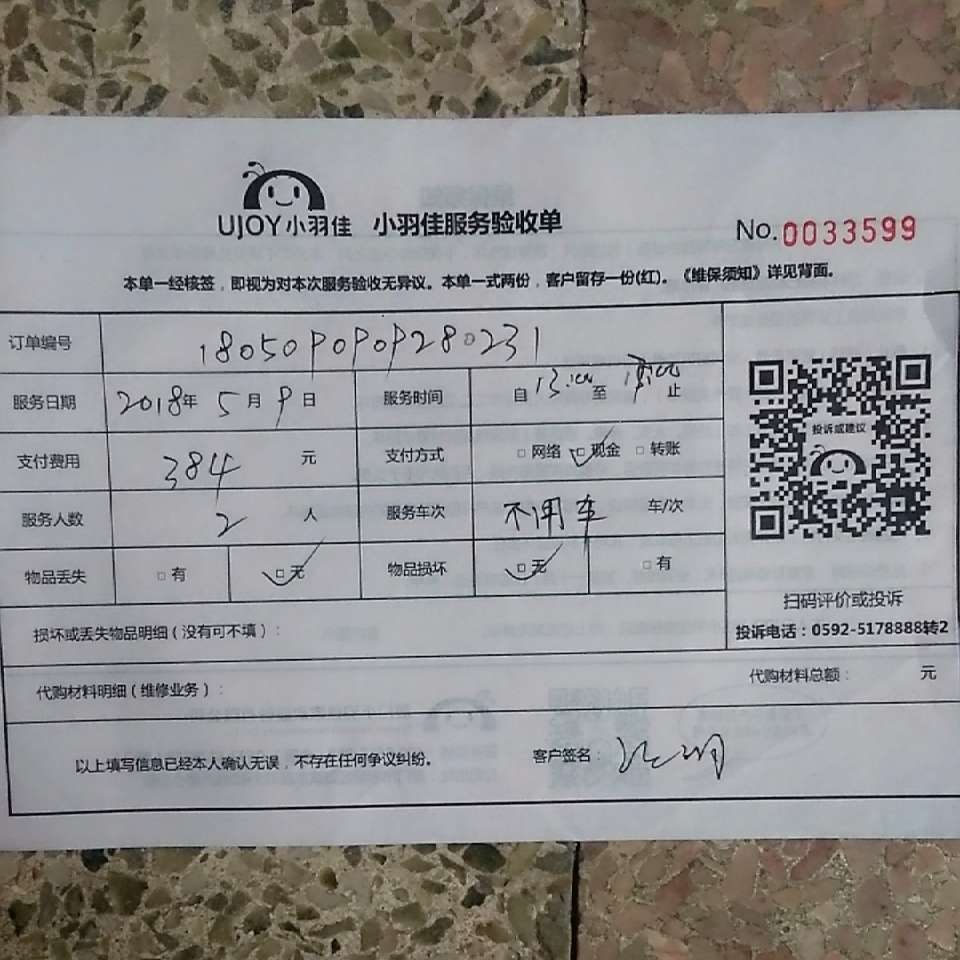 UJOY小羽佳 小羽佳服务验收单 No.0033599
本单一经核签，即视为对本次服务验收无异议。本单一式两份，客户留存一份(红)。《维保须知》详见背面。
订单编号 180509090928 0231
服务日期 2018年 5月 9日 服务时间 自 13:00 至 止
支付费用 384 元 支付方式 □网络 □现金 □转账
服务人数 2 人 服务车次 不用车 车/次
物品丢失 □有 □无 物品损坏 □无 □有
投诉或建议
扫码评价或投诉
投诉电话：0592-5178888转2
损坏或丢失物品明细（没有可不填）：
代购材料明细（维修业务）： 代购材料总额： 元
以上填写信息已经本人确认无误，不存在任何争议纠纷。 客户签名：